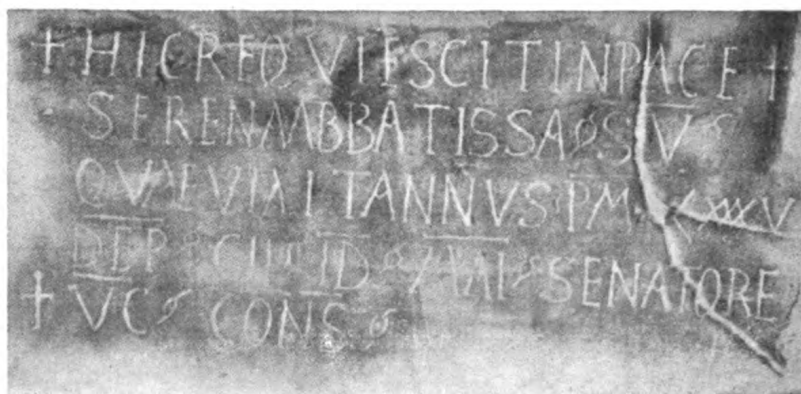 + HIC REQVIESCIT IN PACE +
SERENA ABBATISSA S V
QVAE VIXIT ANNVS PM LXXXV
DEP ID MAI SENATORE
+ VC CONS